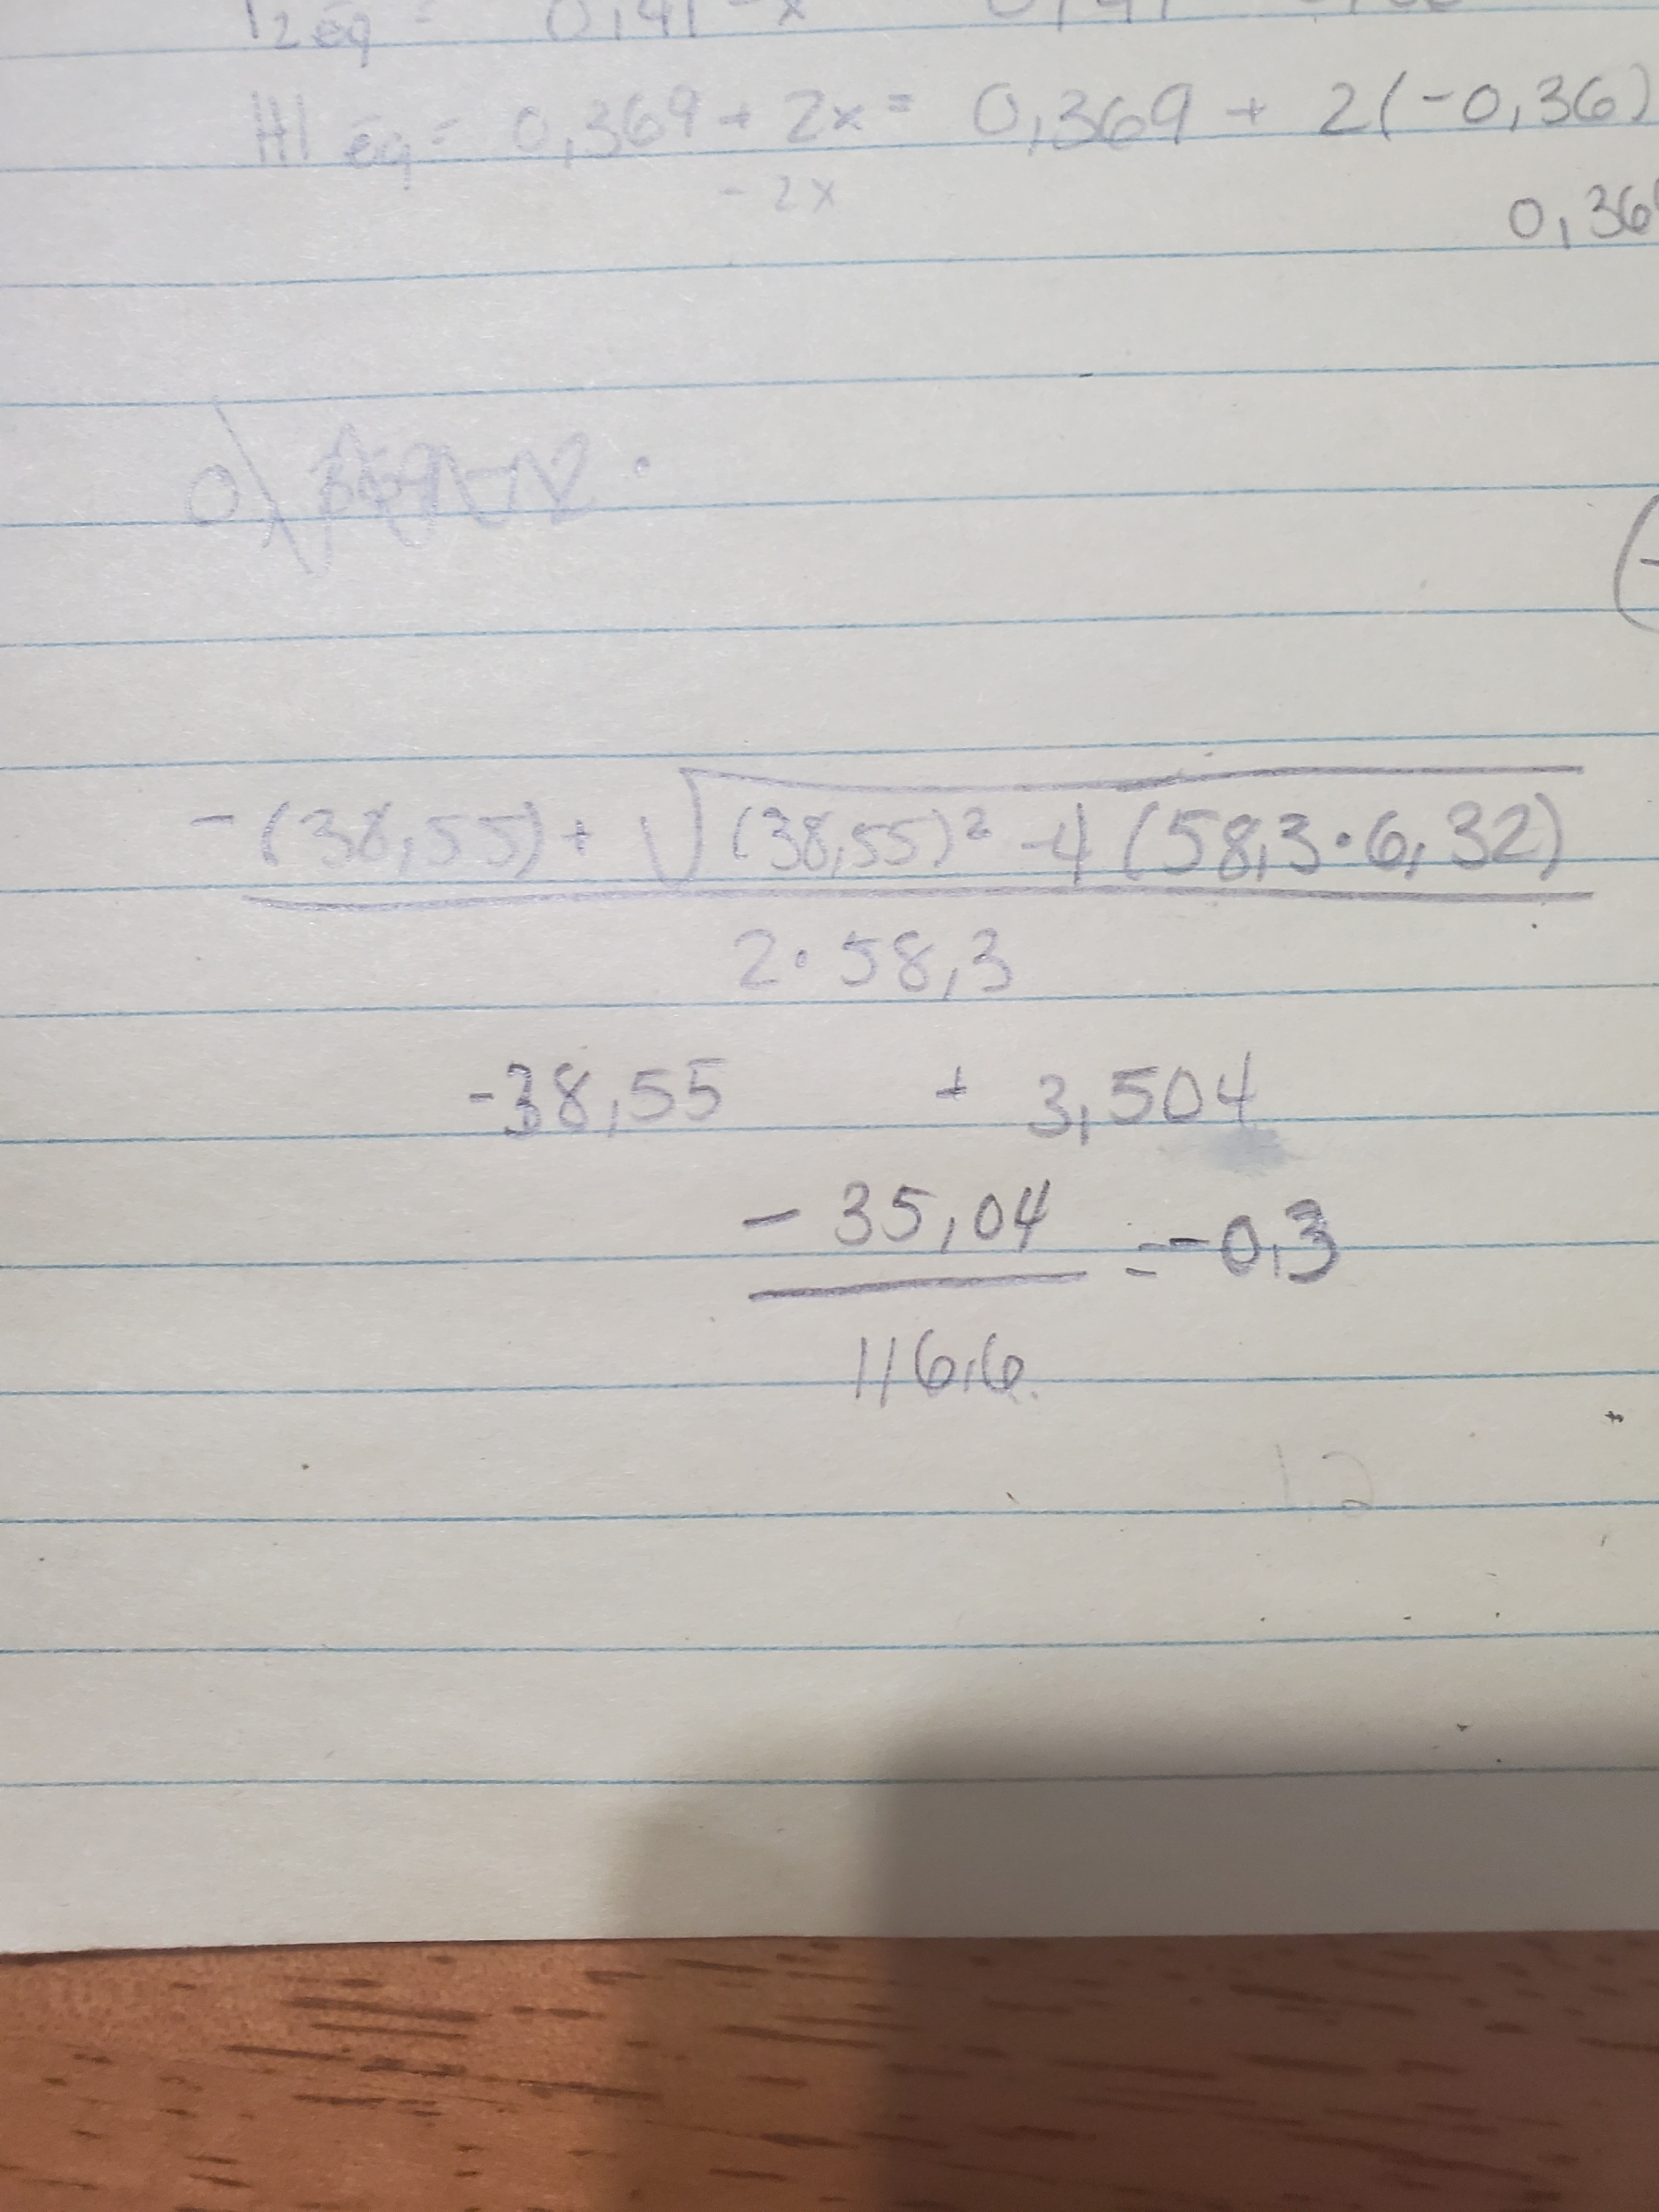 I₂ éq = 0,141 - x
HI éq = 0,369 + 2x = 0,369 + 2(-0,36)
- 2x
0,36
-(38,55) + √(38,55)² - 4 (58,3 · 6,32)
2 · 58,3
-38,55 + 3,504
- 35,04 = -0,3
116,6